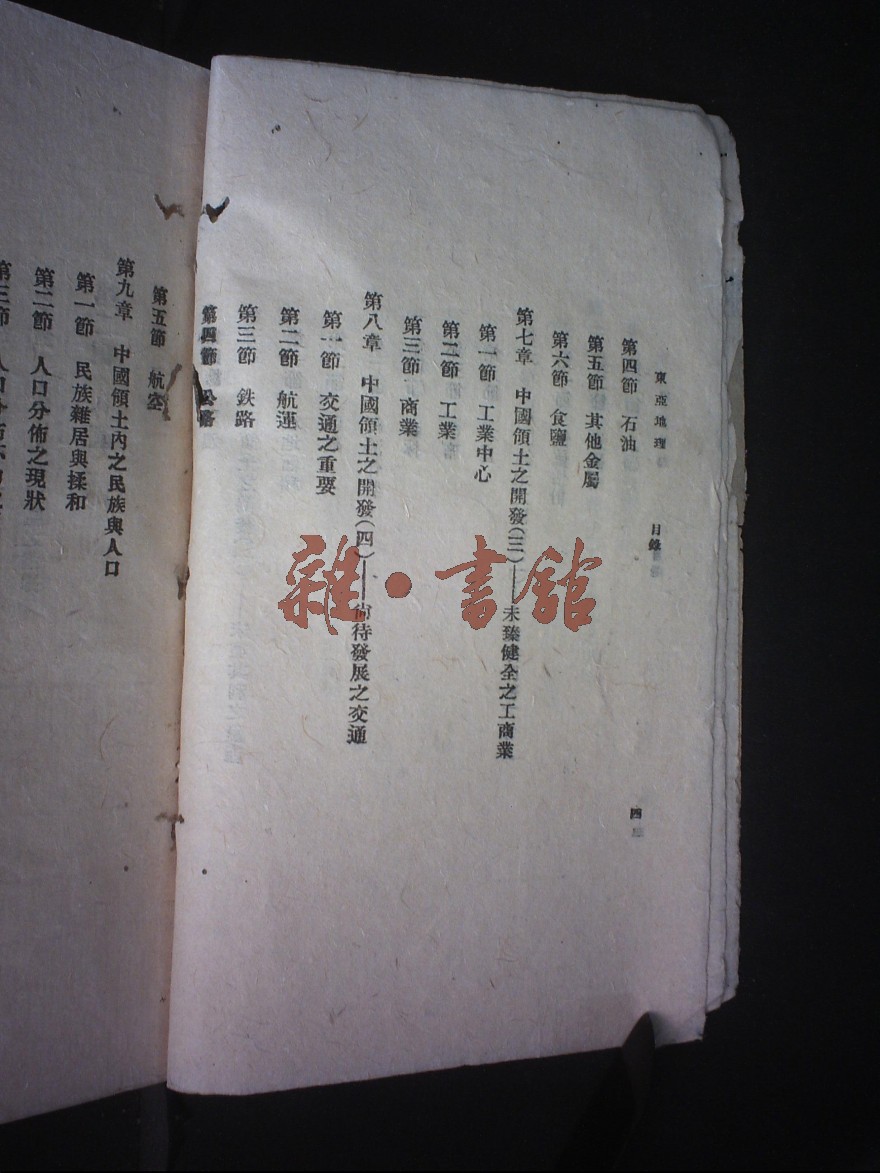 東亞地理 目錄 四
第四節 石油
第五節 其他金屬
第六節 食鹽
第七章 中國領土之開發(三)——未臻健全之工商業
第一節 工業中心
第二節 工業
第三節 商業
第八章 中國領土之開發(四)——尙待發展之交通
第一節 交通之重要
第二節 航運
第三節 鉄路
第四節 公路
第五節 航空
第九章 中國領土內之民族與人口
第一節 民族雜居與揉和
第二節 人口分佈之現狀
第三節 人口分佈不
雜·書館